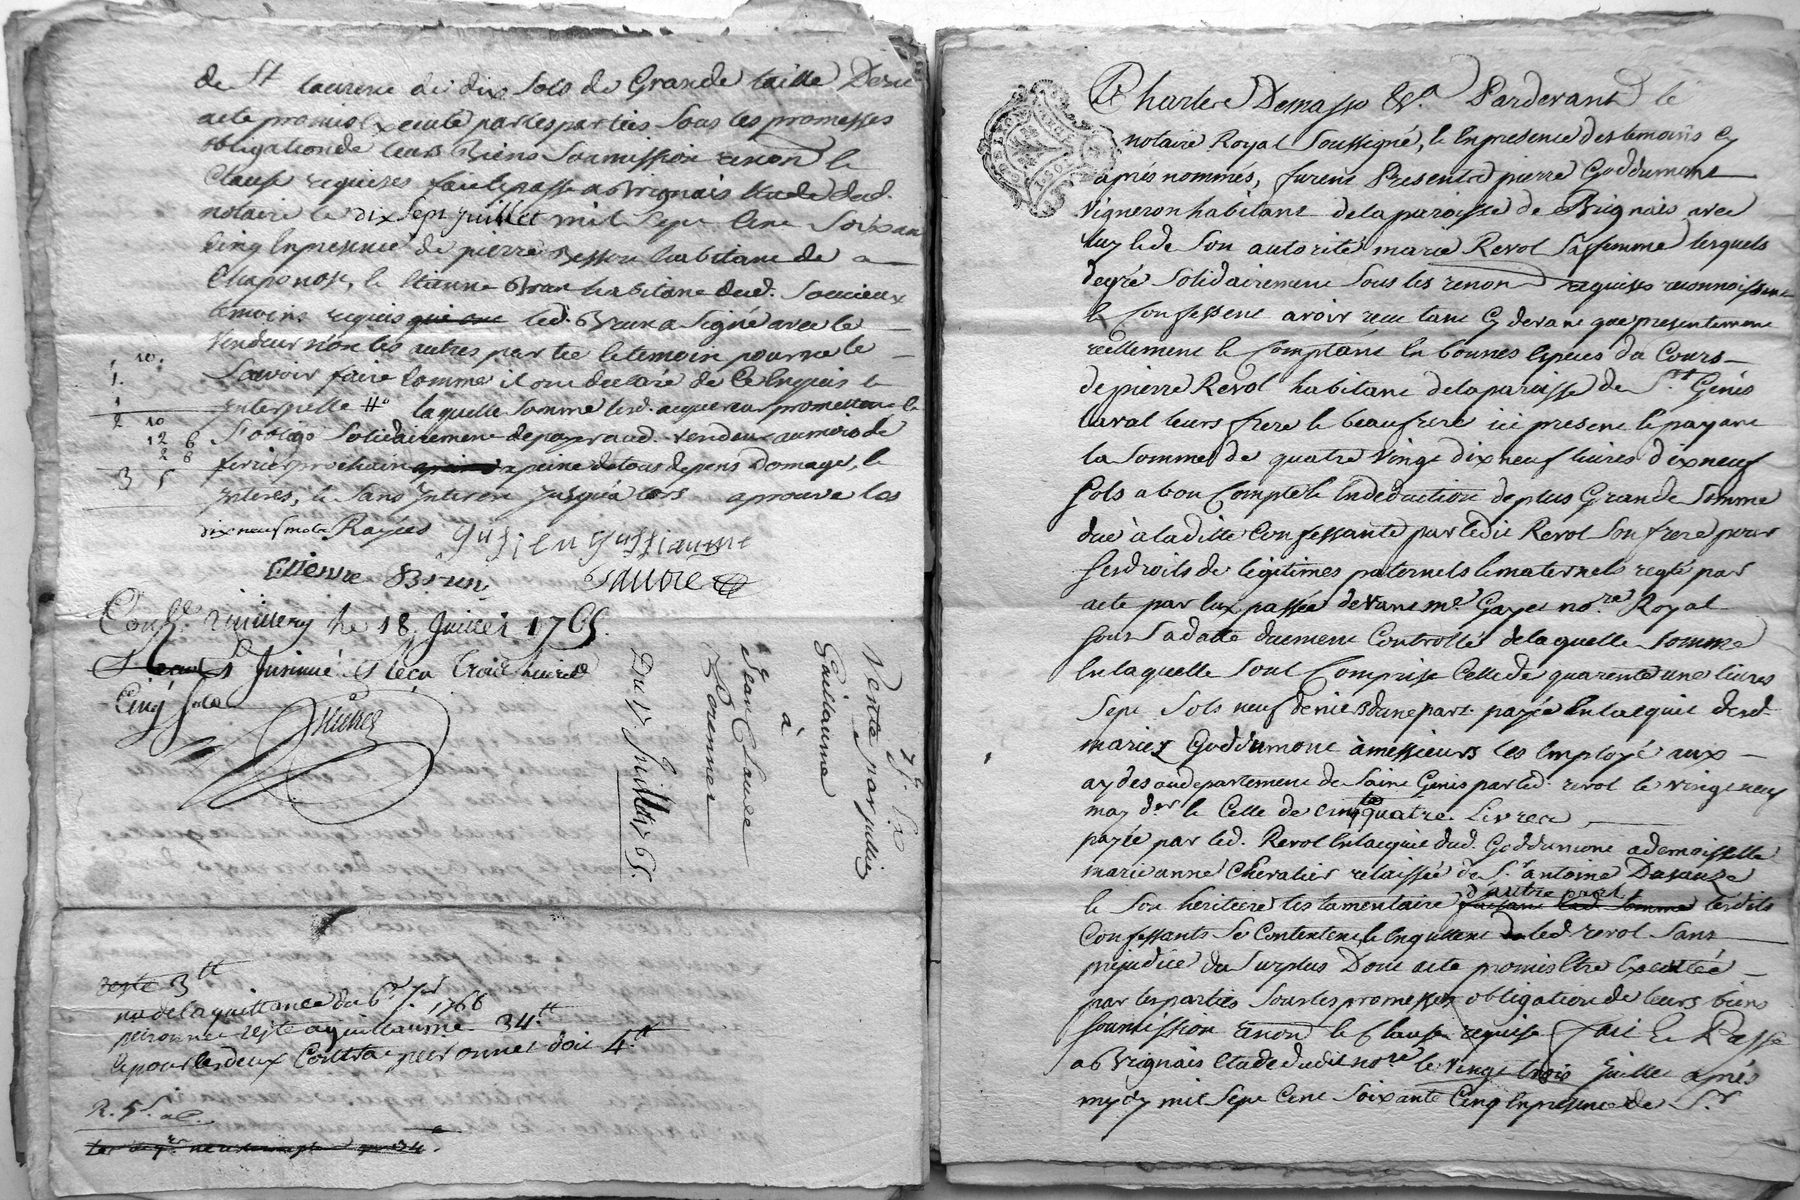 de St laurent de dix sols de Grande taille Dont
acte promis Executé par les parties Sous les promesses
obligation de leurs Biens Soumission renon le
Clause requises fait passé a Brignais Etude dud.
notaire le dix Sept juillet mil Sept Cent Soixan
Cinq En presence de pierre Besson habitant de
Chaponost, & Etienne Brun habitant dud. Soucieux
temoins requis que ont led. Brun a Signé avec le
Vendeur non les autres partie le temoin pour ne le
Savoir faire Comme il ont declaré de Ce Enquis &
Interpellé #o laquelle Somme lesd. acquereurs promettent &
S'oblige Solidairement de payer aud. vendeur au mois de
fevrier prochain a peine de tous depens Domages, &
Interes, & Sans Interest jusqu'a lors aprouve les
dix neuf mots Rayées
10.
1.
1
2 10
12 6
2 8
3 5
jullien gulliaume
Etienne Brun
Conll. 18 Juillet 1765.
Insinué Reçu trois livres
Cinq sols
7r. 65
Vente par jullien
Guillaume
à
Jean Claude
Peronnet
Du 17 Juillet 65.
reste 3tt
no de la quittance du 6. 7r 1766
peironnet reste a guillaume 34.tt
& pour les deux Contra peironnet doit 4.tt
R. 5s.
Pardevant le
notaire Royal Soussigné, & En presence des temoins Cy
après nommés, furent Presents pierre Goddumont
vigneron habitant de la paroisse de Brignais avec
luy & de Son autorité marie Revol Sa femme lesquels
degré Solidairement Sous les renon requises reconnoissent
& Confessent avoir recu tant Cy devant que presentement
reellement & Comptant En bonnes Especes du Cours
de pierre Revol habitant de la paroisse de St Genis
Laval leurs frere & beaufrere ici present & payant
la Somme de quatre Vingt dix neuf livres dix neuf
Sols a bon Compte & En deduction de plus Grande Somme
due à la ditte Confessante par ledit Revol Son frere pour
Ses droits de legitimes paternels & maternels reglé par
acte par Eux passée devant me Gayet nore Royal
Sous Sa datte duement Controllé de laquelle Somme
En laquelle Sont Comprise Celle de quarente une livres
Sept Sols neuf deniers dune part payée En lacquit desd.
mariez Goddumont à messieurs les Employé aux
aydes au departement de Saint Genis par led. revol le vingt neuf
may der & Celle de Cinqte quatre Livres
payée par led. Revol En lacquit dud. Goddumont a demoiselle
marie anne Chevalier relaissée de Sr antoine
& Son heritiere testamentaire d'autre part lesdits
Confessants Se Contentent & En quittent led. revol Sans
prejudice du Surplus Dont acte promis Etre Executée
par les parties Sous les promesses obligation de leurs biens
Soumission renon & Clause requise fait & Passé
a Brignais Etude dudit nore le vingt trois Juillet après
mydy mil Sept Cent Soixante Cinq En presence de Sr